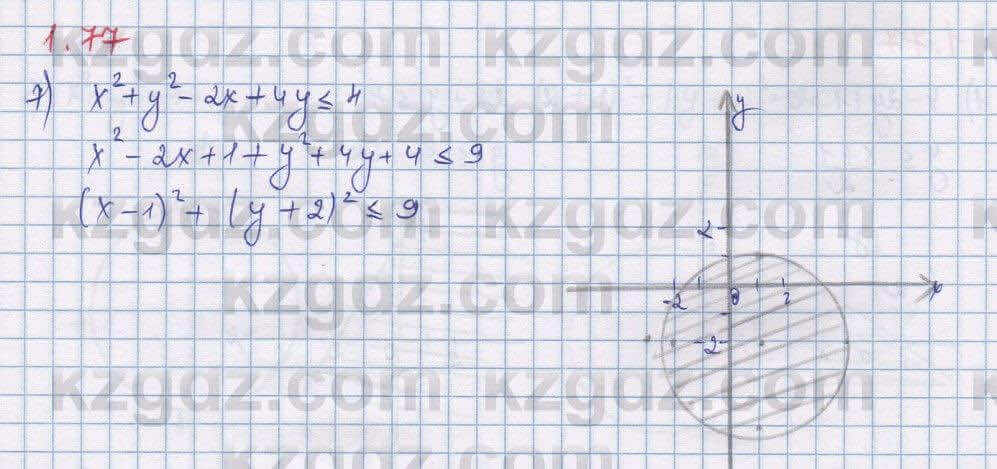 1.77
7) x² + y² - 2x + 4y ≤ 4
x² - 2x + 1 + y² + 4y + 4 ≤ 9
(x - 1)² + (y + 2)² ≤ 9
y
2
-2 0 2 x
-2
kzgdz.com kzgdz.com
kzgdz.com
kzgdz.com kzgdz.com
kzgdz.com
kzgdz.com kzgdz.com
kzgdz.com